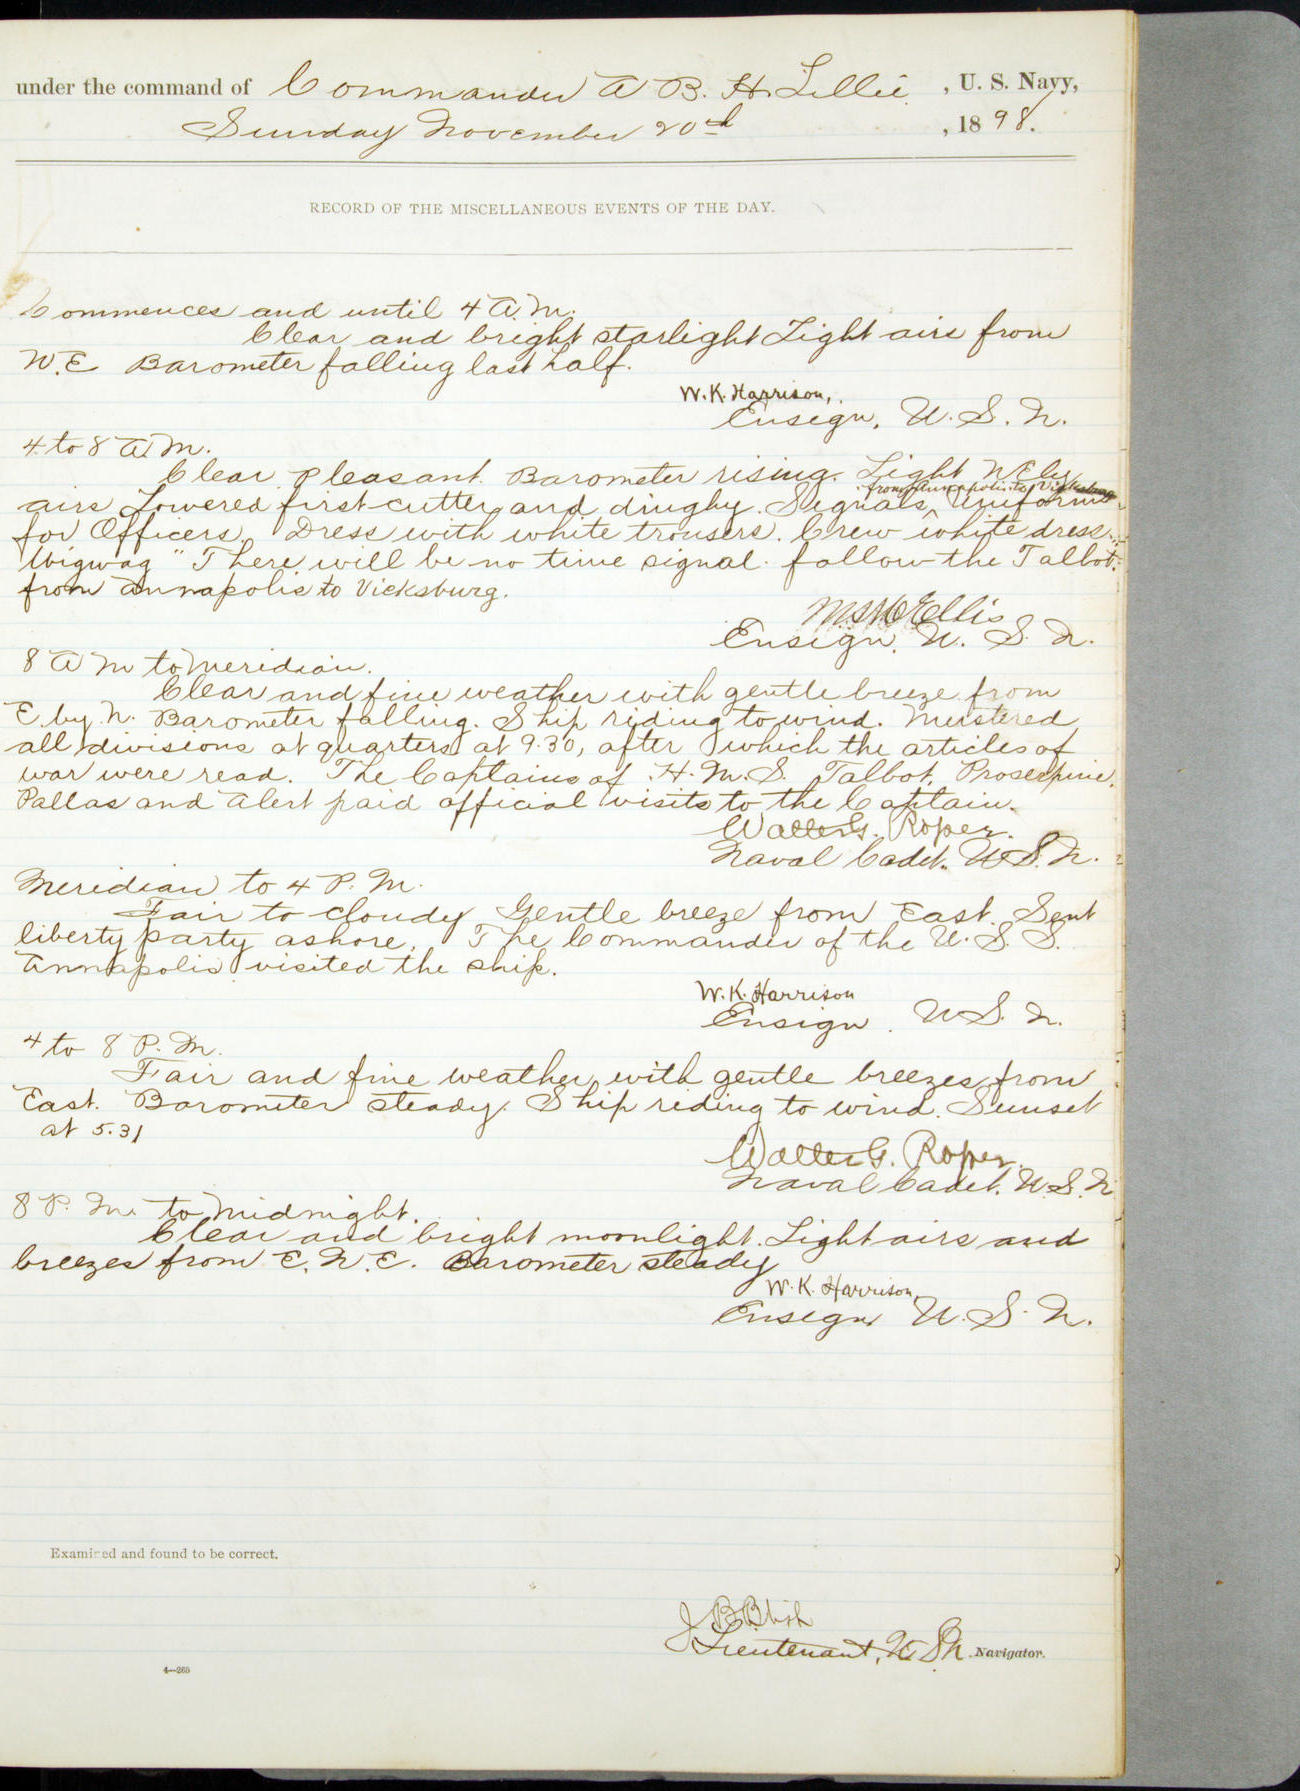 under the command of Commander A B. H. Lillie, U. S. Navy,
Sunday November 20th, 1898.
RECORD OF THE MISCELLANEOUS EVENTS OF THE DAY.
Commences and until 4 A.M.
Clear and bright starlight Light airs from
N.E Barometer falling last half.
W.K. Harrison,
Ensign, U. S. N.
4 to 8 A.M.
Clear pleasant. Barometer rising. Light NEly
from Annapolis to Vicksburg
airs Lowered first cutter and dinghy. Signals ^ Uniform
for Officers. Dress with white trousers. Crew white dress.
Wigwag "There will be no time signal. follow the Talbot."
from Annapolis to Vicksburg.
Ellis
Ensign, U. S. N.
8 A M to Meridian.
Clear and fine weather with gentle breeze from
E. by N. Barometer falling. Ship riding to wind. Mustered
all divisions at quarters at 9.30, after which the articles of
war were read. The Captains of H.M.S. Talbot, Proserpine,
Pallas and Alert paid official visits to the Captain.
Walter G. Roper.
Naval Cadet. U.S.N.
Meridian to 4 P. M.
Fair to cloudy Gentle breeze from East. Sent
liberty party ashore. The Commander of the U. S. S.
Annapolis visited the ship.
W.K. Harrison
Ensign. U.S. N.
4 to 8 P. M.
Fair and fine weather with gentle breezes from
East. Barometer steady. Ship riding to wind. Sunset
at 5.31
Walter G. Roper.
Naval Cadet. U.S.N
8 P. M. to Midnight.
Clear and bright moonlight. Light airs and
breezes from E.N.E. Barometer steady
W.K. Harrison,
Ensign U. S. N.
Examined and found to be correct.
J B Blish
Lieutenant, U S N. Navigator.
4—265